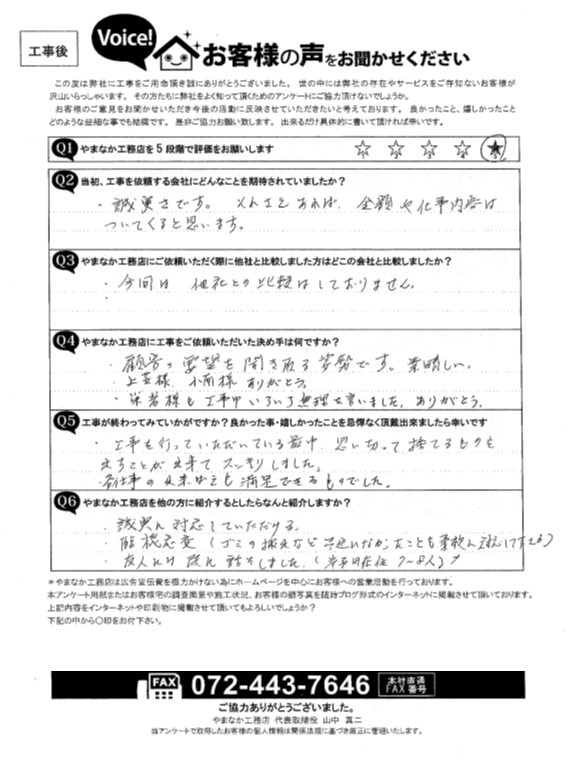 工事後
Voice!
お客様の声をお聞かせください
この度は弊社に工事をご用命頂き誠にありがとうございました。 世の中には弊社の存在やサービスをご存知ないお客様が
沢山いらっしゃいます。 その方たちに弊社をよく知って頂くためのアンケートにご協力頂けないでしょうか。
お客様のご意見をお聞かせいただき今後の活動に反映させていただきたいと考えております。 良かったこと、嬉しかったこと
どのような些細な事でも結構です。 是非ご協力お願い致します。 出来るだけ具体的に書いて頂ければ幸いです。
Q1 やまなか工務店を5段階で評価をお願いします ☆ ☆ ☆ ☆ ★
Q2 当初、工事を依頼する会社にどんなことを期待されていましたか?
・誠実さです。 それさえあれば、金額や仕事内容は
ついてくると思います。
Q3 やまなか工務店にご依頼いただく際に他社と比較しました方はどこの会社と比較しましたか?
・今回は 他社との比較はしておりません。
Q4 やまなか工務店に工事をご依頼いただいた決め手は何ですか?
・顧客の要望を聞き取る姿勢です。素晴しい。
様 ありがとう。
・業者様も工事中いろいろ無理を言いました。ありがとう。
Q5 工事が終わってみていかがですか?良かった事・嬉しかったことを忌憚なく頂戴出来ましたら幸いです
・工事を行っていただいている最中、思い切って捨てるものも
出すことが出来て スッキリしました。
・各仕事の出来ばえも満足できるものでした。
Q6 やまなか工務店を他の方に紹介するとしたらなんと紹介しますか?
・誠実に対応していただける。
・臨機応変 (ゴミの など
・友人には 既に 話をしました。
*やまなか工務店は広告宣伝費を極力かけない為にホームページを中心にお客様への営業活動を行っております。
本アンケート用紙またはお客様宅の調査風景や施工状況、お客様の顔写真を随時ブログ形式のインターネットに掲載させて頂いております。
上記内容をインターネットや印刷物に掲載させて頂いてもよろしいでしょうか?
下記の中から○印をお付下さい。
FAX 072-443-7646 本社直通 FAX番号
ご協力ありがとうございました。
やまなか工務店 代表取締役 山中 真二
当アンケートで取得したお客様の個人情報は関係法規に基づき厳正に管理いたします。